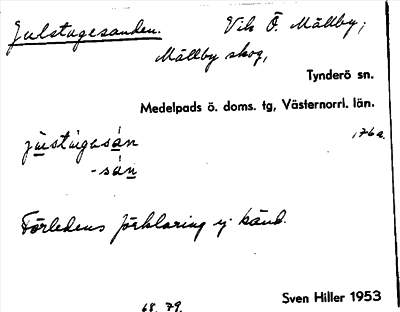 Julstugesanden. Vik Ö. Mällby;
Mällby skog,
Tynderö sn.
Medelpads ö. doms. tg, Västernorrl. län.
176a.
jùstùgasán
-sán
Förledens förklaring ej känd.
Sven Hiller 1953
68. 79.